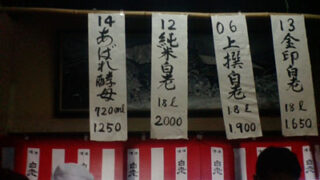 14
あばれ酵母
720ml
1250
12
純米白老
1.8ℓ
2000
06
上撰白老
1.8ℓ
1900
13
金印白老
1.8ℓ
1650
白老
白老
白老